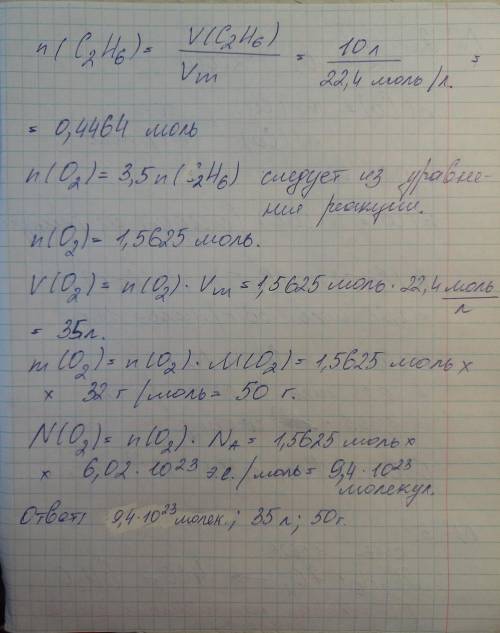 n(C₂H₆) = V(C₂H₆)/Vm = 10 л/22,4 моль/л. =
= 0,4464 моль
n(O₂) = 3,5n(C₂H₆) следует из уравне-
ния реакции.
n(O₂) = 1,5625 моль.
V(O₂) = n(O₂) · Vm = 1,5625 моль · 22,4 моль/л
= 35л.
m(O₂) = n(O₂) · M(O₂) = 1,5625 моль х
х 32 г/моль = 50 г.
N(O₂) = n(O₂) · NA = 1,5625 моль х
х 6,02 · 10²³ э.е./моль = 9,4 · 10²³
молекул.
Ответ: 9,4·10²³ молек.; 35 л; 50г.